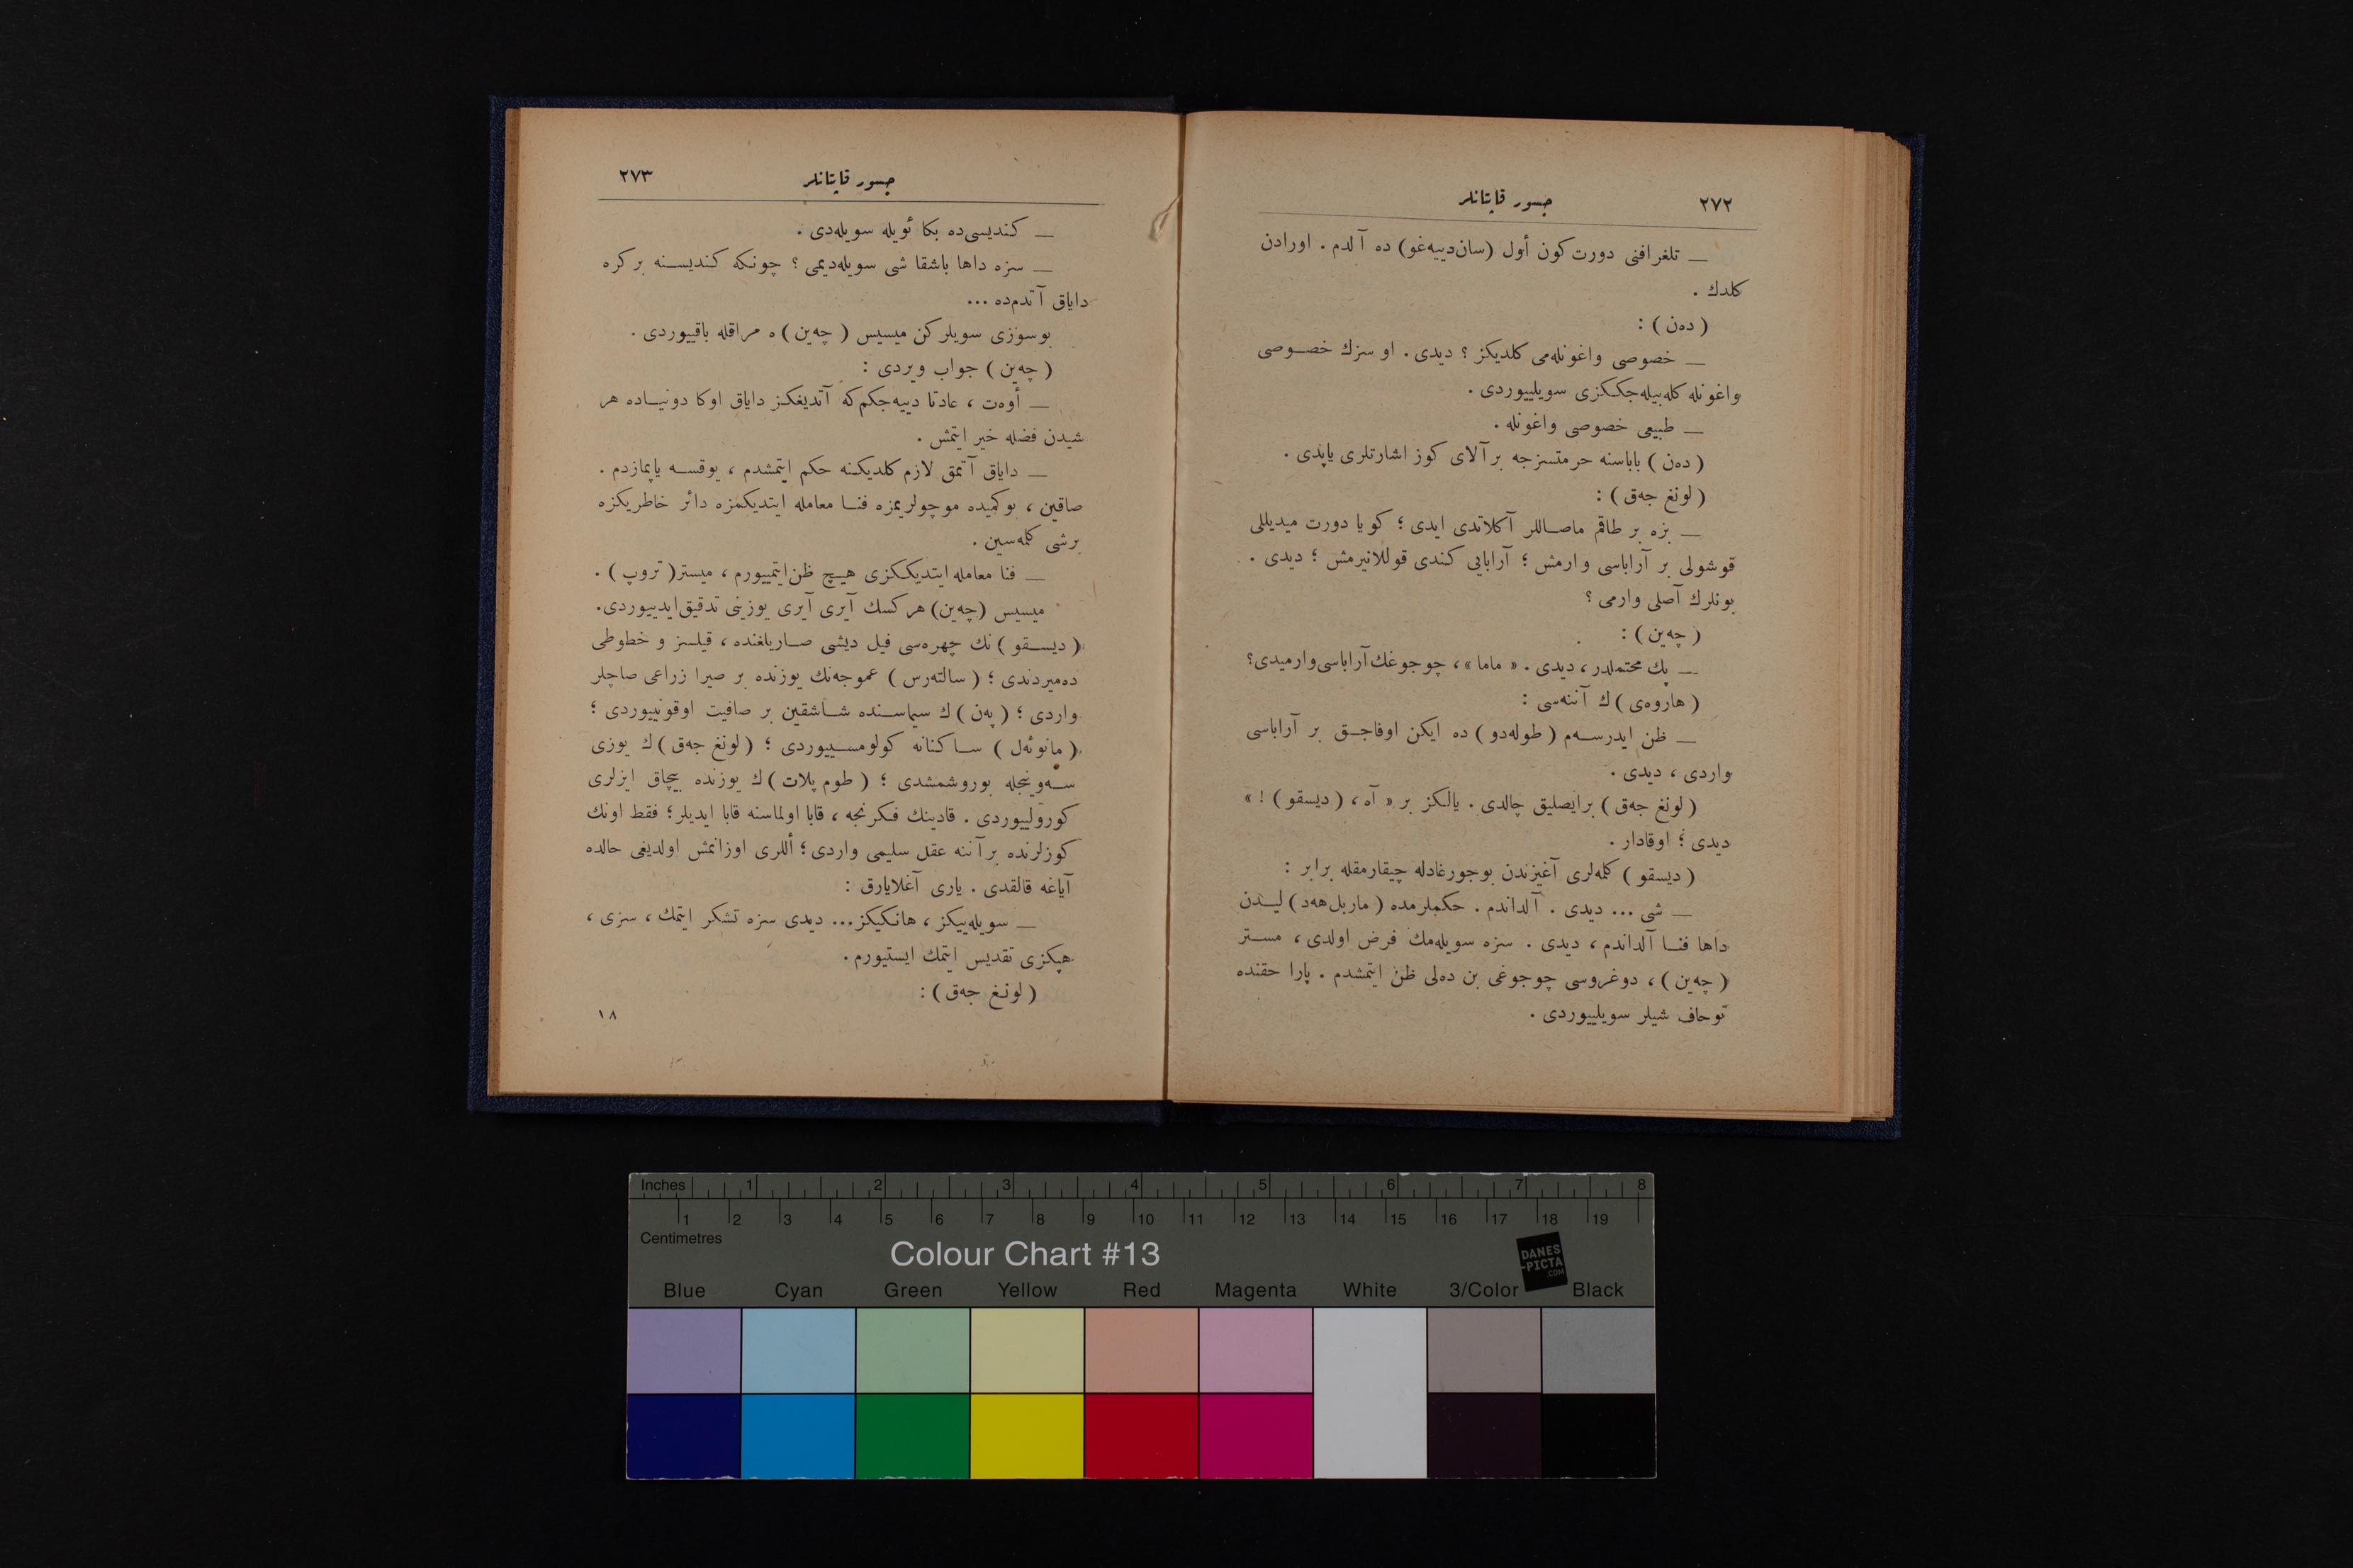 ٢٧٢
جسور قاپتانلر
— تلغرافنی دورت كون أول (سان‌دییه‌غو) ده آلدم . اورادن
كلدك .
( ده‌ن ) :
— خصوصی واغونله‌می كلدیكز ؟ دیدی . او سزك خصـوصی
واغونله كله‌بیله‌جككزی سویلییوردی .
— طبیعی خصوصی واغونله .
( ده‌ن ) باباسنه حرمتسزجه بر آلای كوز اشارتلری یاپدی .
( لونغ جه‌ق ) :
— بزه بر طاقم ماصـاللر آكلاتدی ایدی ؛ كویا دورت میدیللی
قوشولی بر آراباسی وارمش ؛ آرابایی كندی قوللانیرمش ؛ دیدی .
بونلرك آصلی وارمی ؟
( چه‌ین ) :
— پك محتملدر ، دیدی . « ماما » ، چوجوغك آراباسی وارمیدی ؟
( هاروه‌ی ) ك آننه‌سی :
— ظن ایدرسـه‌م ( طوله‌دو ) ده ایكن اوفاجـق بر آراباسی
واردی ، دیدی .
( لونغ جه‌ق ) برایصلیق چالدی . یالكز بر « آه ، ( دیسقو ) ! »
دیدی ؛ اوقادار .
( دیسقو ) كلمه‌لری آغیزندن بوجورغادله چیقارمقله برابر :
— شی ... دیدی . آلداندم . حكملرمده ( ماربل‌هه‌د ) لیـدن
داها فنـا آلداندم ، دیدی . سزه سویله‌مك فرض اولدی ، مسـتر
( چه‌ین ) ، دوغروسی چوجوغی بن ده‌لی ظن ایتمشدم . پارا حقنده
توحاف شیلر سویلییوردی .
٢٧٣
جسور قاپتانلر
— كندیسی‌ده بكا ئویله سویله‌دی .
— سزه داها باشقا شی سویله‌دیمی ؟ چونكه كندیسـنه بر كره
دایاق آتدم‌ده ...
بوسوزی سویلركن میسیس ( چه‌ین ) ه مراقله باقییوردی .
( چه‌ین ) جواب ویردی :
— أوه‌ت ، عادتا دییه‌جكم كه آتدیغكـز دایاق اوكا دونیـاده هر
شیدن فضله خیر ایتمش .
— دایاق آتمق لازم كلدیكنه حكم ایتمشدم ، یوقسـه یاپمازدم .
صاقین ، بوكمیده موچولریمزه فنـا معامله ایتدیكمزه دائر خاطریكزه
برشی كلمه‌سین .
— فنا معامله ایتدیككزی هیـچ ظن‌ایتمییورم ، میستر ( تروپ ) .
میسیس ( چه‌ین ) هركسك آیری آیری یوزینی تدقیق‌ایدییوردی .
( دیسـقو ) نك چهره‌سی فیل دیشی صـاریلغنده ، قیلسز و خطوطی
ده‌میردندی ؛ ( سالته‌رس ) عموجه‌نك یوزنده بر صیرا زراعی صاچلر
واردی ؛ ( په‌ن ) ك سیماسـنده شـاشقین بر صافیت اوقونییوردی ؛
( مانوئه‌ل ) سـاكتانه كولومسـییوردی ؛ ( لونغ جه‌ق ) ك یوزی
سـه‌وینجله بوروشمشدی ؛ ( طوم پلات ) ك یوزنده بیچاق ایزلری
كورولییوردی . قادینك فـكرنجه ، قابا اولماسنه قابا ایدیلر ؛ فقط اونك
كوزلرنده بر آننه عقل سلیمی واردی ؛ أللری اوزانمش اولدیغی حالده
آیاغه قالقدی . یاری آغلایارق :
— سویله‌ییكز ، هانكیكز... دیدی سزه تشكر ایتمك ، سزی ،
هپكزی تقدیس ایتمك ایستیورم .
( لونـغ جه‌ق ) :
١٨
Inches 1 2 3 4 5 6 7 8
1 2 3 4 5 6 7 8 9 10 11 12 13 14 15 16 17 18 19
Centimetres
Colour Chart #13
DANES
-PICTA
.COM
Blue Cyan Green Yellow Red Magenta White 3/Color Black